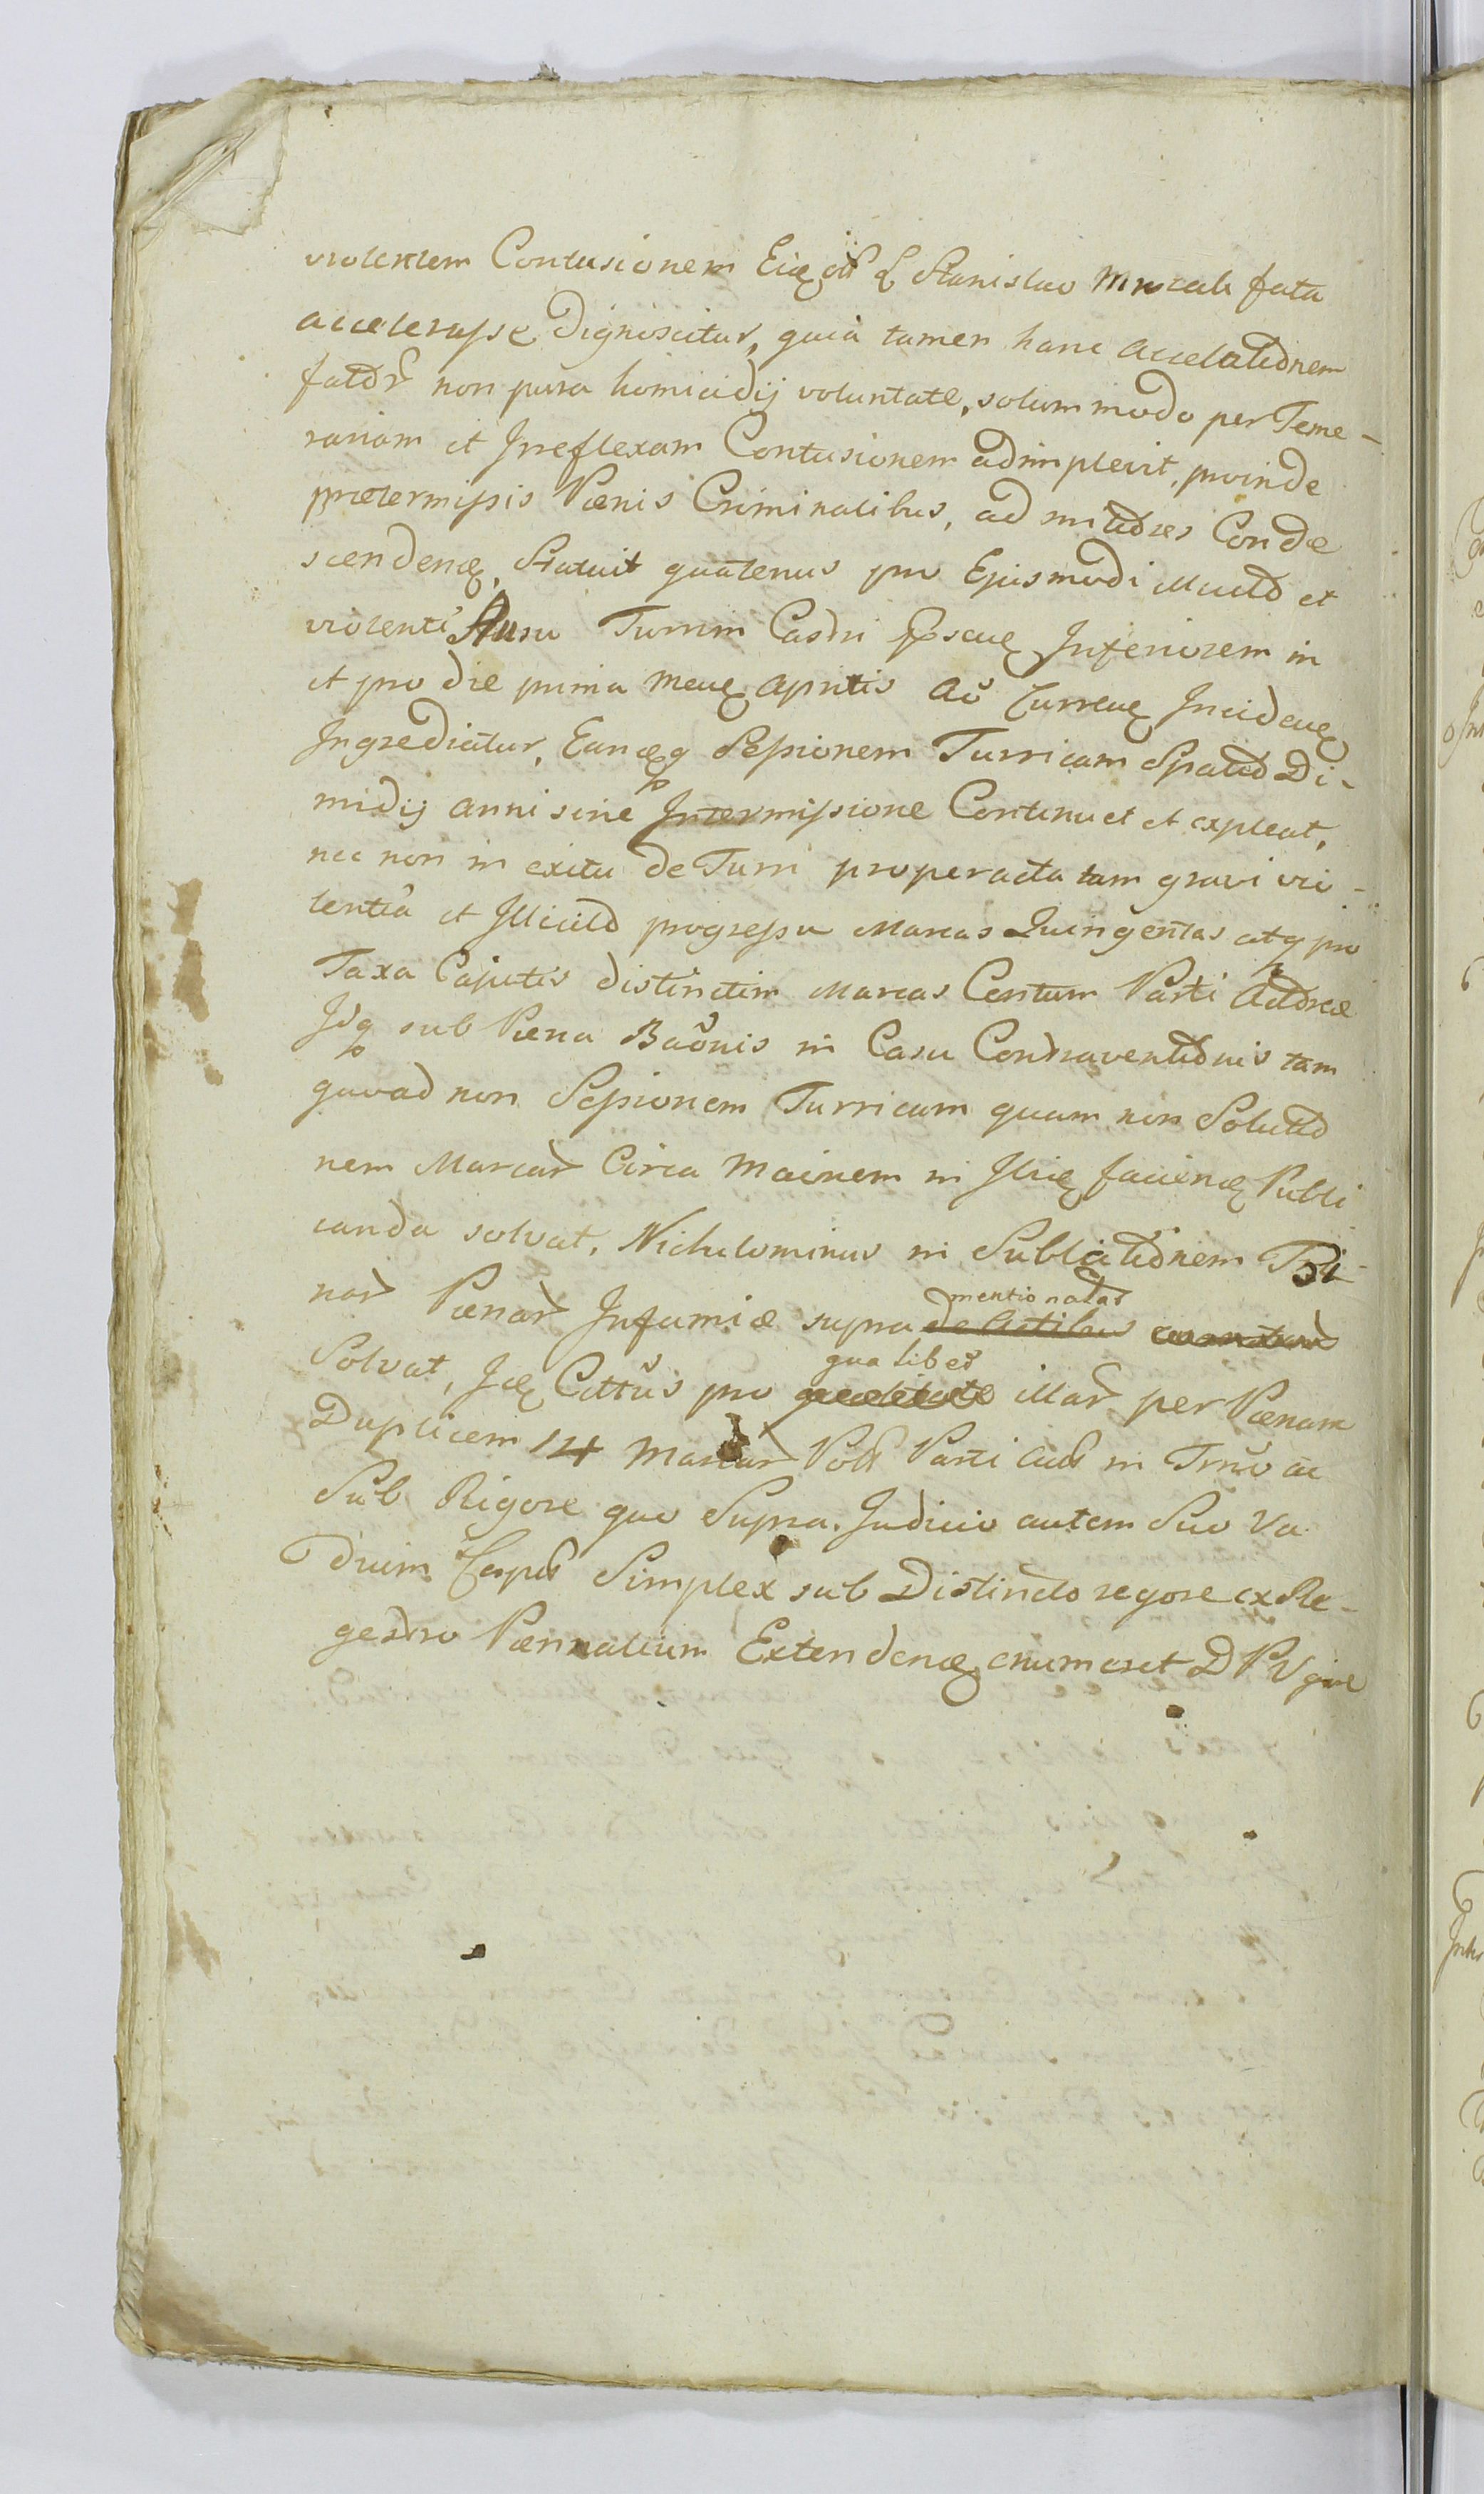 violentem Contusionem Eid. ol. L Stanislao Mrozek fata
accelerasse Dignoscitur, quia tamen hanc accelationem
fator non pura homicidij voluntate, solummodo per Teme-
rariam et Irreflexam Contusionem adimplevit, proinde
prætermissis Pœnis Criminalibus, ad mitiores Conde
scenden, Statuit quatenus pro Ejusmodi illicito et
violenti Ausu Turrim Castri Inferiorem in
et pro die prima Men Aprilis Aõ Curren Inciden
Ingrediatur, Eandq Sessionem Turricam Spatio Di-
midij anni sine Intermissione Continuet et expleat,
nec non in exitu de Turri pro peracta tam gravi vio-
lentiâ et Illicito progressu Marcas Quingentas atq pro
Taxa Capitis distinctim Marcas Centum Parti Actoreæ
Idq sub Pœna Baõnis in Casu Contraventionis tam
quoad non Sessionem Turricam quam non Solutio
nem Marcar Circa Mainem in facien Publi
canda solvat. Nichilominus in Sublationem Tri-
nar Pœnar Infamiæ supra mentionatar
Solvat, Cittũs pro qualibet illar per Pœnam
Duplicem 14 Marcar Pol Parti Act in Trno ac
Sub Rigore quo Supra. Judicio autem Suo Va
dium Simplex sub Distincto regore ex Re-
gestro Pœnnalium Extenden enumeret D P V gine